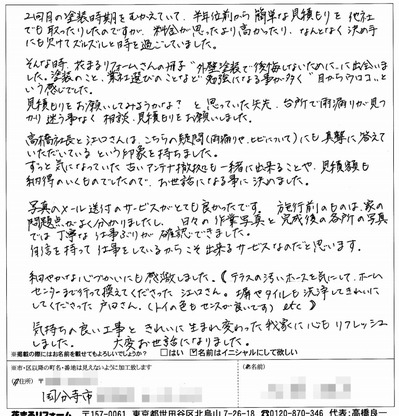 2回目の塗装時期をむかえていて、半年位前から簡単な見積もりを他社
でも取ったりしたのですが、料金が思ったより高かったり、なんとなく決め手
にも欠けてズルズルと時を過ごしていました。
そんな時、花まるリフォームさんの冊子"外壁塗装で後悔しないために"に出会いま
した。塗装のこと、業社選びのことなど勉強になる事が多く"目からウロコ"と
いう感じでした。
見積もりをお願いしてみようかなぁ?と思っていた矢先、台所で雨漏りが見つ
かり迷う事なく相談、見積もりをお願いしました。
高橋社長と江口さんは、こちらの疑問(雨漏りや、ヒビについて)にも真摯に答えて
いただいているという印象を持ちました。
ずっと気になっていた古いアンテナ撤収も一緒に出来ることや、見積額も
納得のいくものでしたので、お世話になる事に決めました。
写真のメール送付のサービスがとても良かったです。施行前のものは、家の
問題点がよく分かりましたし、日々の作業写真と完成後の各所の写真
では丁寧な仕事ぶりが確認できました。
自信を持って仕事をしているからこそ出来るサービスなのだと思います。
細やかな心づかいにも感激しました。《テラスの汚いホースを気にして、ホーム
センターまで行って換えてくださった江口さん。塀やタイルも洗浄してきれいに
してくださった戸田さん。(トイの色もセンスが良いです) etc 》
気持ちの良い工事ときれいに生まれ変わった我家に心もリフレッシュ
しました。大変お世話になりました。
※掲載の際にはお名前を載せてもよろしいでしょうか? □はい ☑名前はイニシャルにして欲しい
※市・区以降の町名・番地は見えないように加工致します
〈ご住所〉〒
国分寺市
〈お名前〉
花まるリフォーム 〒157-0061 東京都世田谷区北烏山7-26-18 ☎0120-870-346 代表:高橋良一